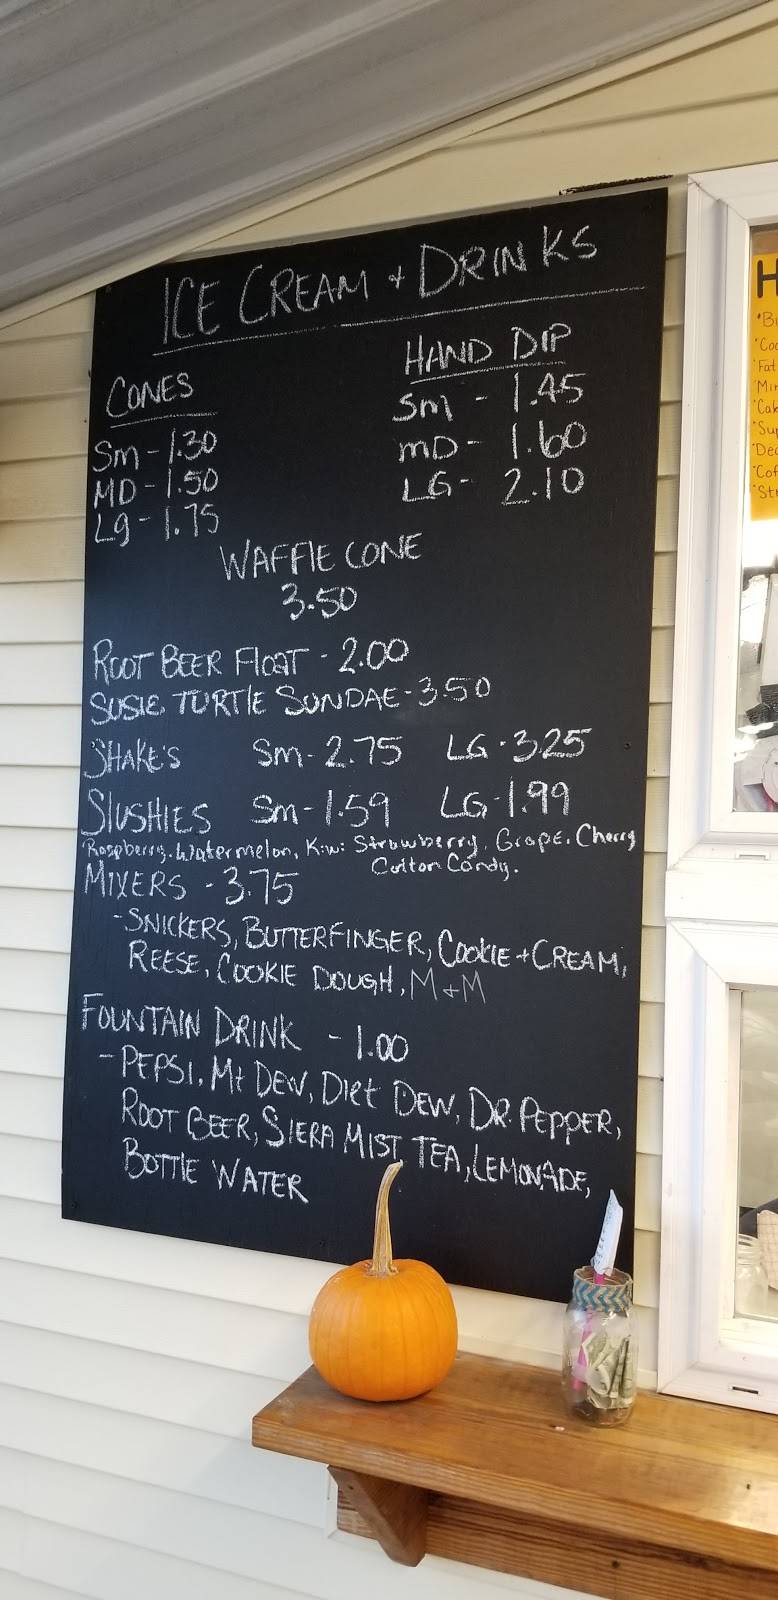 ICE CREAM + DRINKS
CONES
Sm - 1.30
MD - 1.50
Lg - 1.75
HAND DIP
Sm - 1.45
MD - 1.60
LG - 2.10
WAFFLE CONE
3.50
ROOT BEER FLOAT - 2.00
SUSIE TURTLE SUNDAE - 3.50
SHAKE'S Sm - 2.75 LG - 3.25
SLUSHIES Sm - 1.59 LG - 1.99
Raspberry, Watermelon, Kiwi Strawberry, Grape, Cherry
Cotton Candy.
MIXERS - 3.75
- SNICKERS, BUTTERFINGER, COOKIE + CREAM,
REESE, COOKIE DOUGH, M + M
FOUNTAIN DRINK - 1.00
- PEPSI, Mt DEW, DIET DEW, DR. PEPPER,
ROOT BEER, SIERA MIST, TEA, LEMONADE,
BOTTLE WATER
H
Fat